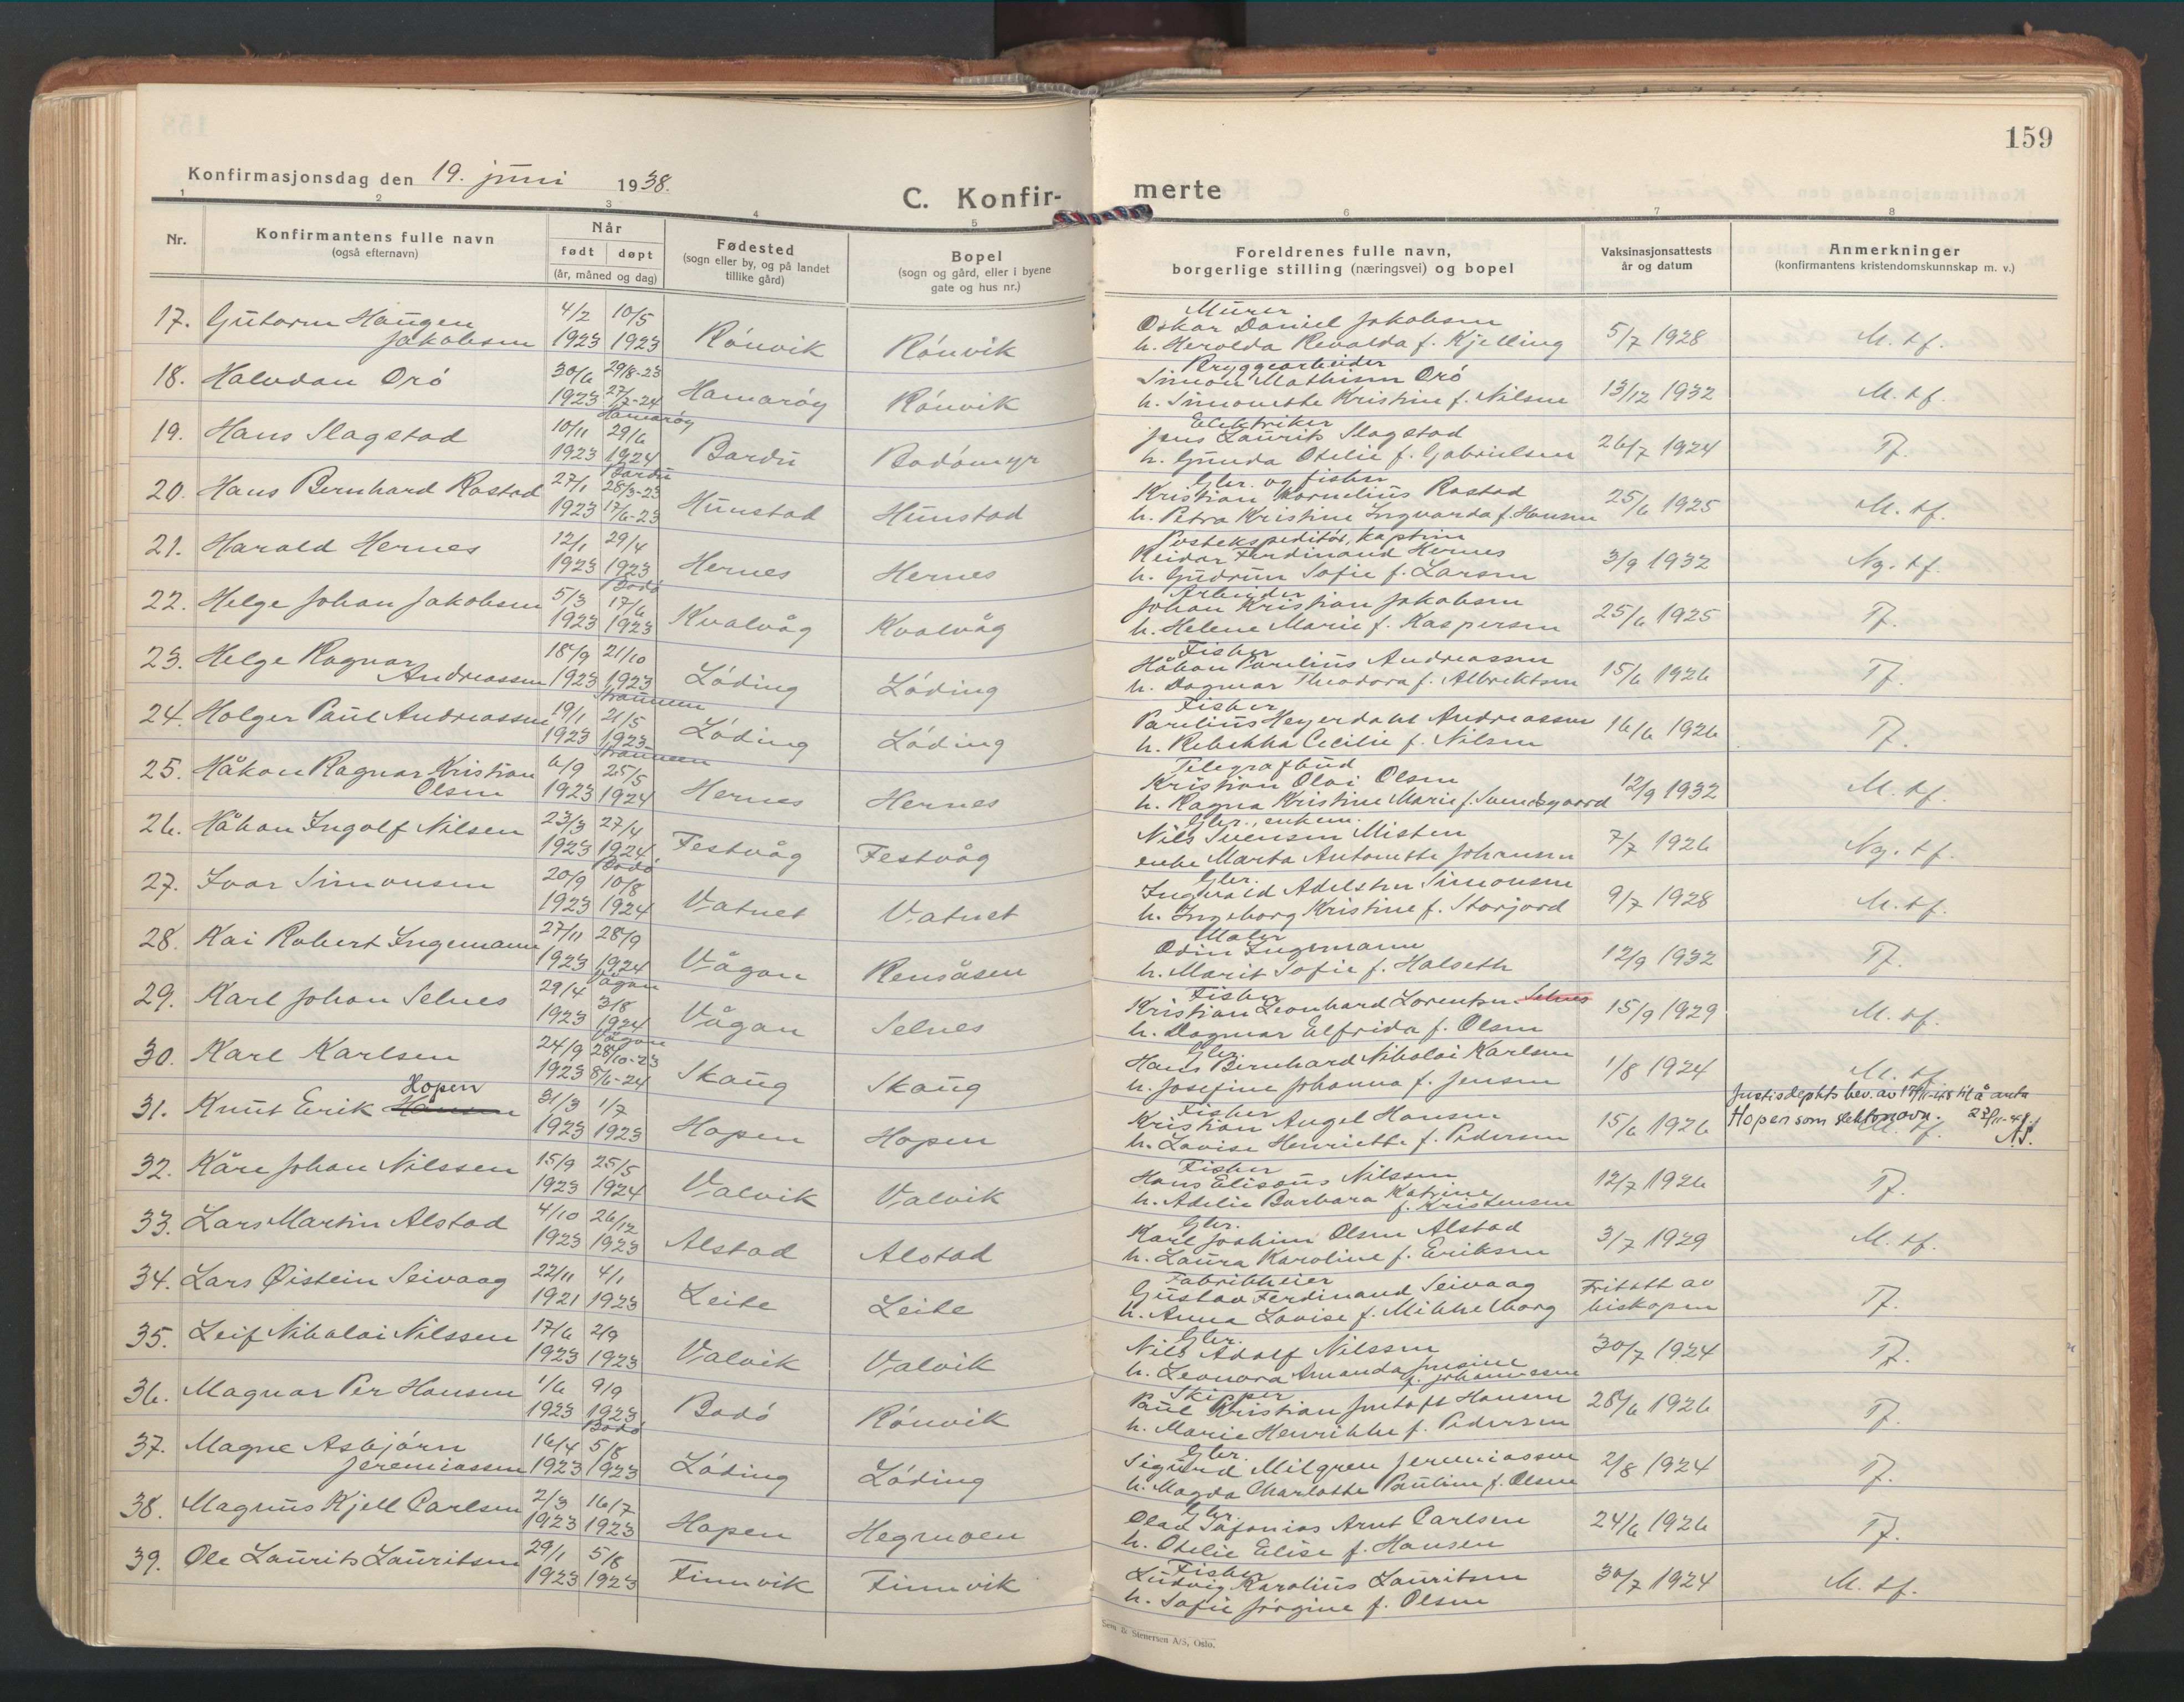 159
Konfirmasjonsdag den 19. juni 1938.
C. Konfir-
merte
1 2 3 4 5 6 7 8
Nr.
Konfirmantens fulle navn
(også efternavn)
Når
født døpt
(år, måned og dag)
Fødested
(sogn eller by, og på landet
tillike gård)
Bopel
(sogn og gård, eller i byene
gate og hus nr.)
Foreldrenes fulle navn,
borgerlige stilling (næringsvei) og bopel
Vaksinasjonsattests
år og datum
Anmerkninger
(konfirmantens kristendomskunnskap m. v.)
Murer
17. Gutorm Haugen 4/2 10/5 Oskar Daniel Jakobsen
Jakobsen 1923 1923 Rönvik Rönvik h. Herolda Revalda f. Kjelling 5/7 1928 M. tf.
Bryggearbeider
18. Halvdan Orö 30/6 29/8-23 Simon Mathisen Orö
1923 27/7-24 Hamaröy Hamaröy Rönvik h. Simonette Kristine f. Nilsen 13/12 1932 M. tf.
Elektriker
19. Hans Slagstad 10/11 29/6 Jens Laurits Slagstad
1923 1924 Bardu Bardu Bodömyr h. Gunda Otilie f. Gabrielsen 26/7 1924 Tf.
Gbr. og fisker
20. Hans Bernhard Rastad 27/1 28/3-23 Kristian Kornelius Rastad
1923 17/6-23 Hunstad Hunstad h. Petra Kristine Ingvarda f. Hansen 25/6 1925 M. tf.
Postekspeditör, kaptein
21. Harald Hernes 12/1 29/4 Reidar Ferdinand Hernes
1923 1923 Bodö Hernes Hernes h. Gudrun Sofie f. Larsen 3/9 1932 Ng. tf.
Arbeider
22. Helge Johan Jakobsen 5/3 17/6 Johan Kristian Jakobsen
1923 1923 Kvalvåg Kvalvåg h. Helene Marie f. Kaspersen 25/6 1925 Tf.
Fisker
23. Helge Ragnar 18/9 21/10 Håkon Parelius Andreassen
Andreassen 1923 1923 Straumen Löding Löding h. Dagmar Theodora f. Albrektsen 15/6 1926 Tf.
Fisker
24. Holger Paul Andreassen 19/1 21/5 Parelius Heyerdahl Andreassen
1923 1923 Straumen Löding Löding h. Rebekka Cecilie f. Nilsen 16/6 1926 Tf.
Telegrafbud
25. Håkon Ragnar Kristian 6/9 25/5 Kristian Olai Olsen
Olsen 1923 1924 Hernes Hernes h. Ragna Kristine Marie f. Svendsgaard 12/9 1932 M. tf.
Gbr., enkem.
26. Håkon Ingolf Nilsen 23/3 27/4 Nils Svensen Misten
1923 1924 Bodö Festvåg Festvåg enke Marta Antonette Johansen 7/7 1926 Ng. tf.
Gbr.
27. Ivar Simonsen 20/9 10/8 Ingvald Adelsten Simonsen
1923 1924 Vatnet Vatnet h. Ingeborg Kristine f. Storjord 9/7 1928 M. tf.
Maler
28. Kai Robert Ingemann 27/11 28/9 Odin Ingemann
1923 1924 Vågan Vågan Rensåsen h. Marit Sofie f. Halseth 12/9 1932 Tf.
Fisker
29. Karl Johan Selnes 29/4 3/8 Kristian Leonhard Lorentsen Selnes
1923 1924 Vågan Vågan Selnes h. Dagmar Elfrida f. Olsen 15/9 1929 M. tf.
Gbr.
30. Karl Karlsen 24/9 28/10-23 Hans Bernhard Nikolai Karlsen
1923 8/6-24 Skaug Skaug h. Josefine Johanna f. Jensen 1/8 1924 M. tf.
Hopen Fisker Justisdepts bev. av 17/11-48 til å anta
31. Knut Erik Hansen 31/3 1/7 Kristian Angel Hansen Hopen som slektsnavn. 27/11-48
1923 1923 Hopen Hopen h. Lovise Henriette f. Pedersen 15/6 1926 M. tf.
Fisker
32. Kåre Johan Nilssen 15/9 25/5 Hans Elisæus Nilssen
1923 1924 Valvik Valvik h. Adelie Barbara Katrine f. Kristensen 12/7 1926 Tf.
Gbr.
33. Lars Martin Alstad 4/10 26/12 Karl Joakim Olsen Alstad
1923 1923 Alstad Alstad h. Laura Karoline f. Eriksen 3/7 1929 M. tf.
Fabrikkeier
34. Lars Øistein Seivaag 22/11 4/1 Gustav Ferdinand Seivaag Fritatt av
1921 1923 Leite Leite h. Anna Lovise f. Mikkelborg biskopen Tf.
Gbr.
35. Leif Nikolai Nilssen 17/6 2/9 Nils Adolf Nilssen
1923 1923 Valvik Valvik h. Leonora Amanda Jensine f. Johannessen 30/7 1924 Tf.
Skipper
36. Magnar Per Hansen 1/6 9/9 Paul Kristian Justoft Hansen
1923 1923 Bodö Bodö Rönvik h. Marie Henrikke f. Pedersen 28/6 1926 Tf.
Gbr.
37. Magne Asbjörn 16/4 5/8 Sigurd Milgren Jeremiassen
Jeremiassen 1923 1923 Löding Löding h. Magda Charlotte Pauline f. Olsen 2/8 1924 Tf.
Gbr.
38. Magnus Kjell Carlsen 2/3 16/7 Olav Sefanias Arnt Carlsen
1923 1923 Hopen Hegmoen h. Otelie Elise f. Hansen 24/6 1926 Tf.
Fisker
39. Ole Laurits Lauritsen 29/1 5/8 Ludvig Karolius Lauritsen
1923 1923 Finnvik Finnvik h. Sofie Jörgine f. Olsen 30/7 1924 M. tf.
Sem & Stenersen A/S, Oslo.